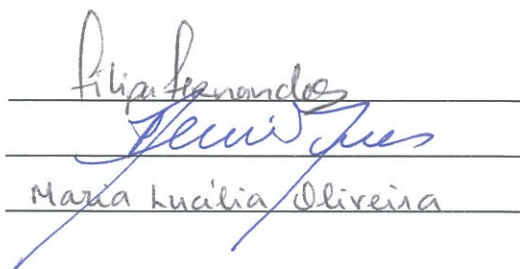 Filipa Fernandes
Maria Lucília Oliveira